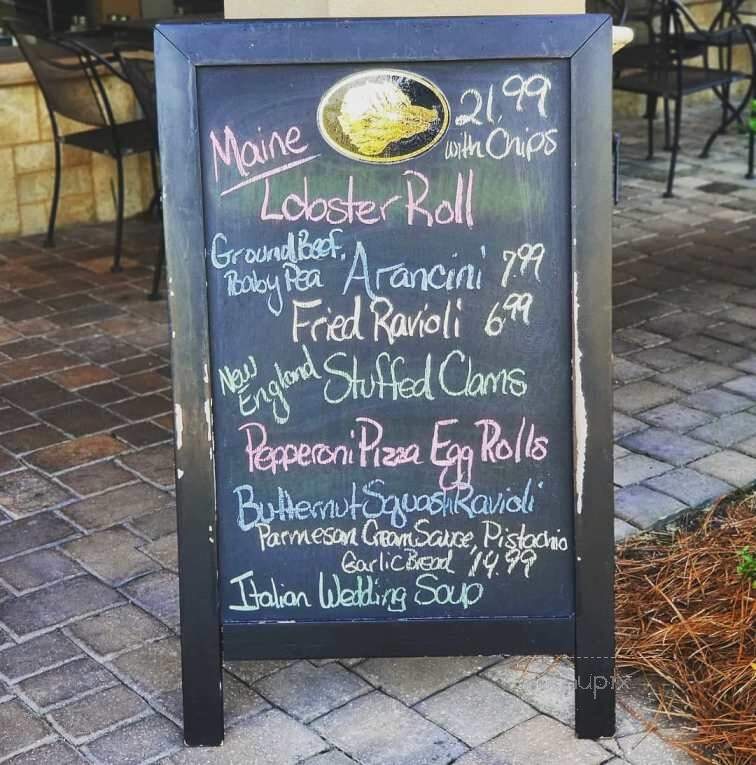 21.99
Maine
with Chips
Lobster Roll
Ground Beef,
Baby Pea Arancini 7.99
Fried Ravioli 6.99
New
England Stuffed Clams
Pepperoni Pizza Egg Rolls
Butternut Squash Ravioli
Parmesan Cream Sauce, Pistachio
Garlic Bread 14.99
Italian Wedding Soup